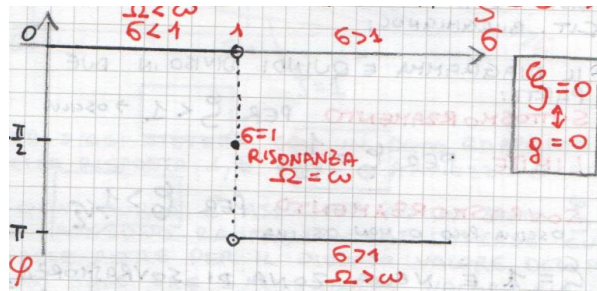 Ω<ω
0 σ<1 1 σ>1 σ
ξ=0
↕
g=0
π/2 σ=1
RISONANZA
Ω=ω
π
σ>1
φ Ω>ω